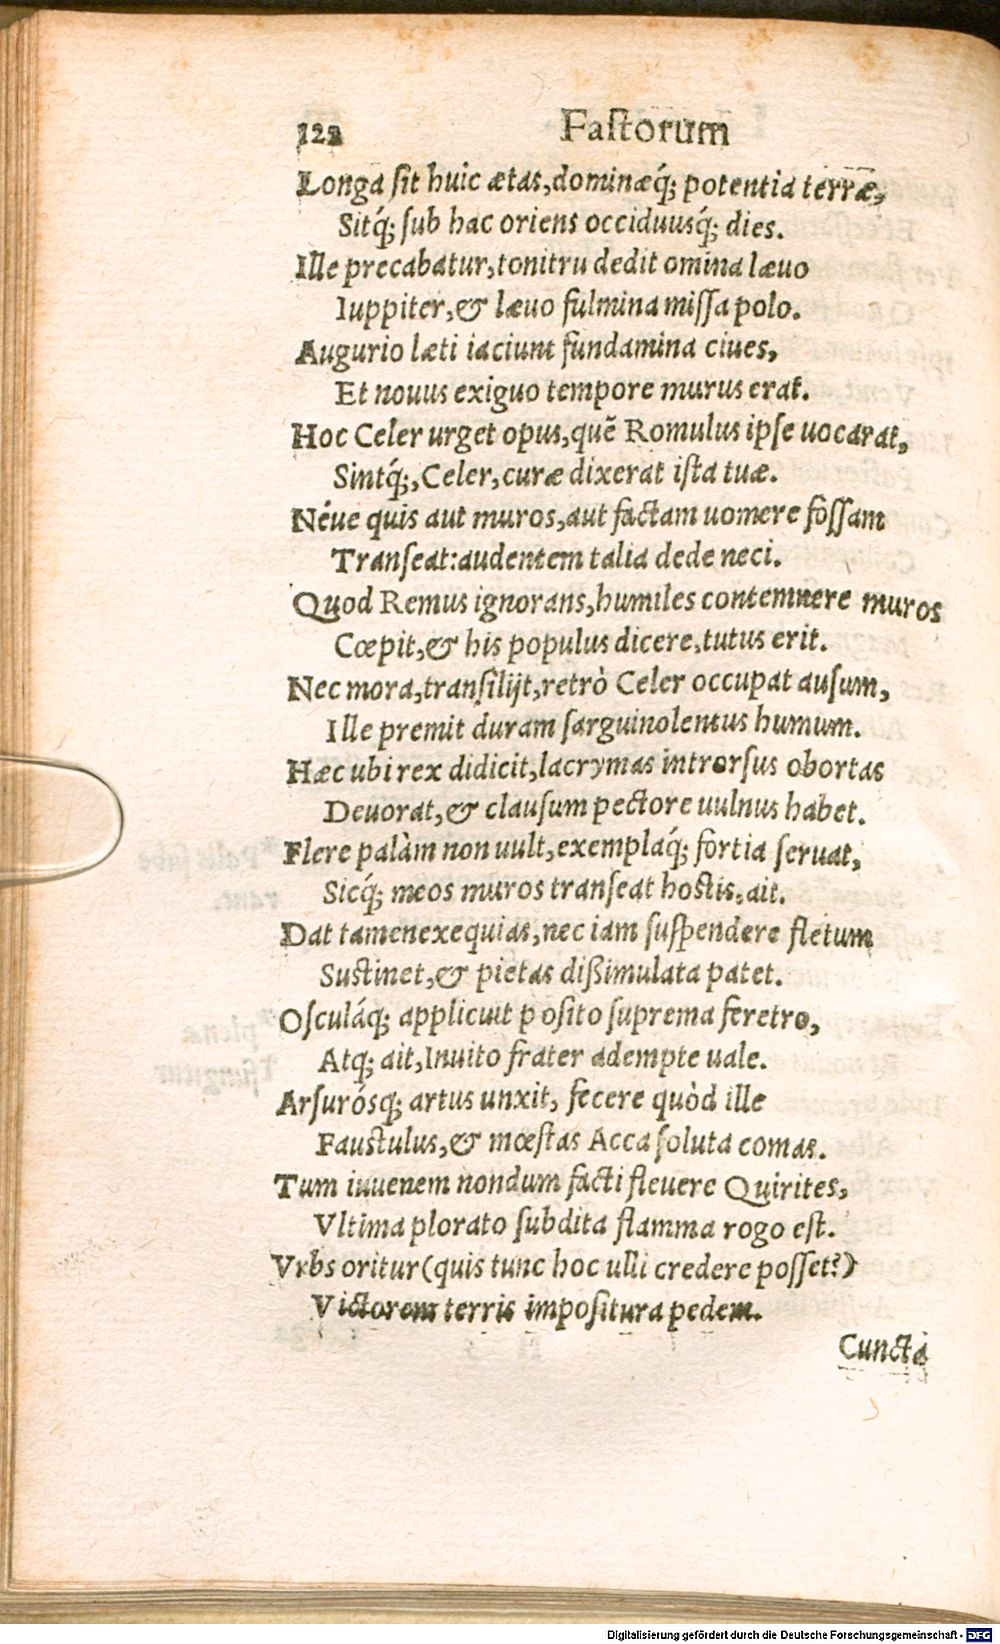 122 Fastorum
Longa sit huic ætas, dominæq́; potentia terræ,
Sitq́; sub hac oriens occiduusq́; dies.
Ille precabatur, tonitru dedit omina læuo
Iuppiter, & læuo fulmina missa polo.
Augurio læti iaciunt fundamina ciues,
Et nouus exiguo tempore murus erat.
Hoc Celer urget opus, quē Romulus ipse uocarat,
Sintq́;, Celer, curæ dixerat ista tuæ.
Néue quis aut muros, aut factam uomere fossam
Transeat: audentem talia dede neci.
Quod Remus ignorans, humiles contemnere muros
Cœpit, & his populus dicere, tutus erit.
Nec mora, transilijt, retrò Celer occupat ausum,
Ille premit duram sarguinolentus humum.
Hæc ubi rex didicit, lacrymas introrsus obortas
Deuorat, & clausum pectore uulnus habet.
Flere palàm non uult, exemplaq́; fortia seruat,
Sicq́; meos muros transeat hostis, ait.
Dat tamen exequias, nec iam suspendere fletum
Sustinet, & pietas dißimulata patet.
Osculáq; applicuit posito suprema feretro,
Atq; ait, Inuito frater adempte uale.
Arsurósq; artus unxit, fecere quòd ille
Faustulus, & mœstas Acca soluta comas.
Tum iuuenem nondum facti fleuere Quirites,
Vltima plorato subdita flamma rogo est.
Vrbs oritur (quis tunc hoc ulli credere posset?)
Victorem terris impositura pedem.
Cuncta
Digitalisierung gefördert durch die Deutsche Forschungsgemeinschaft - DFG